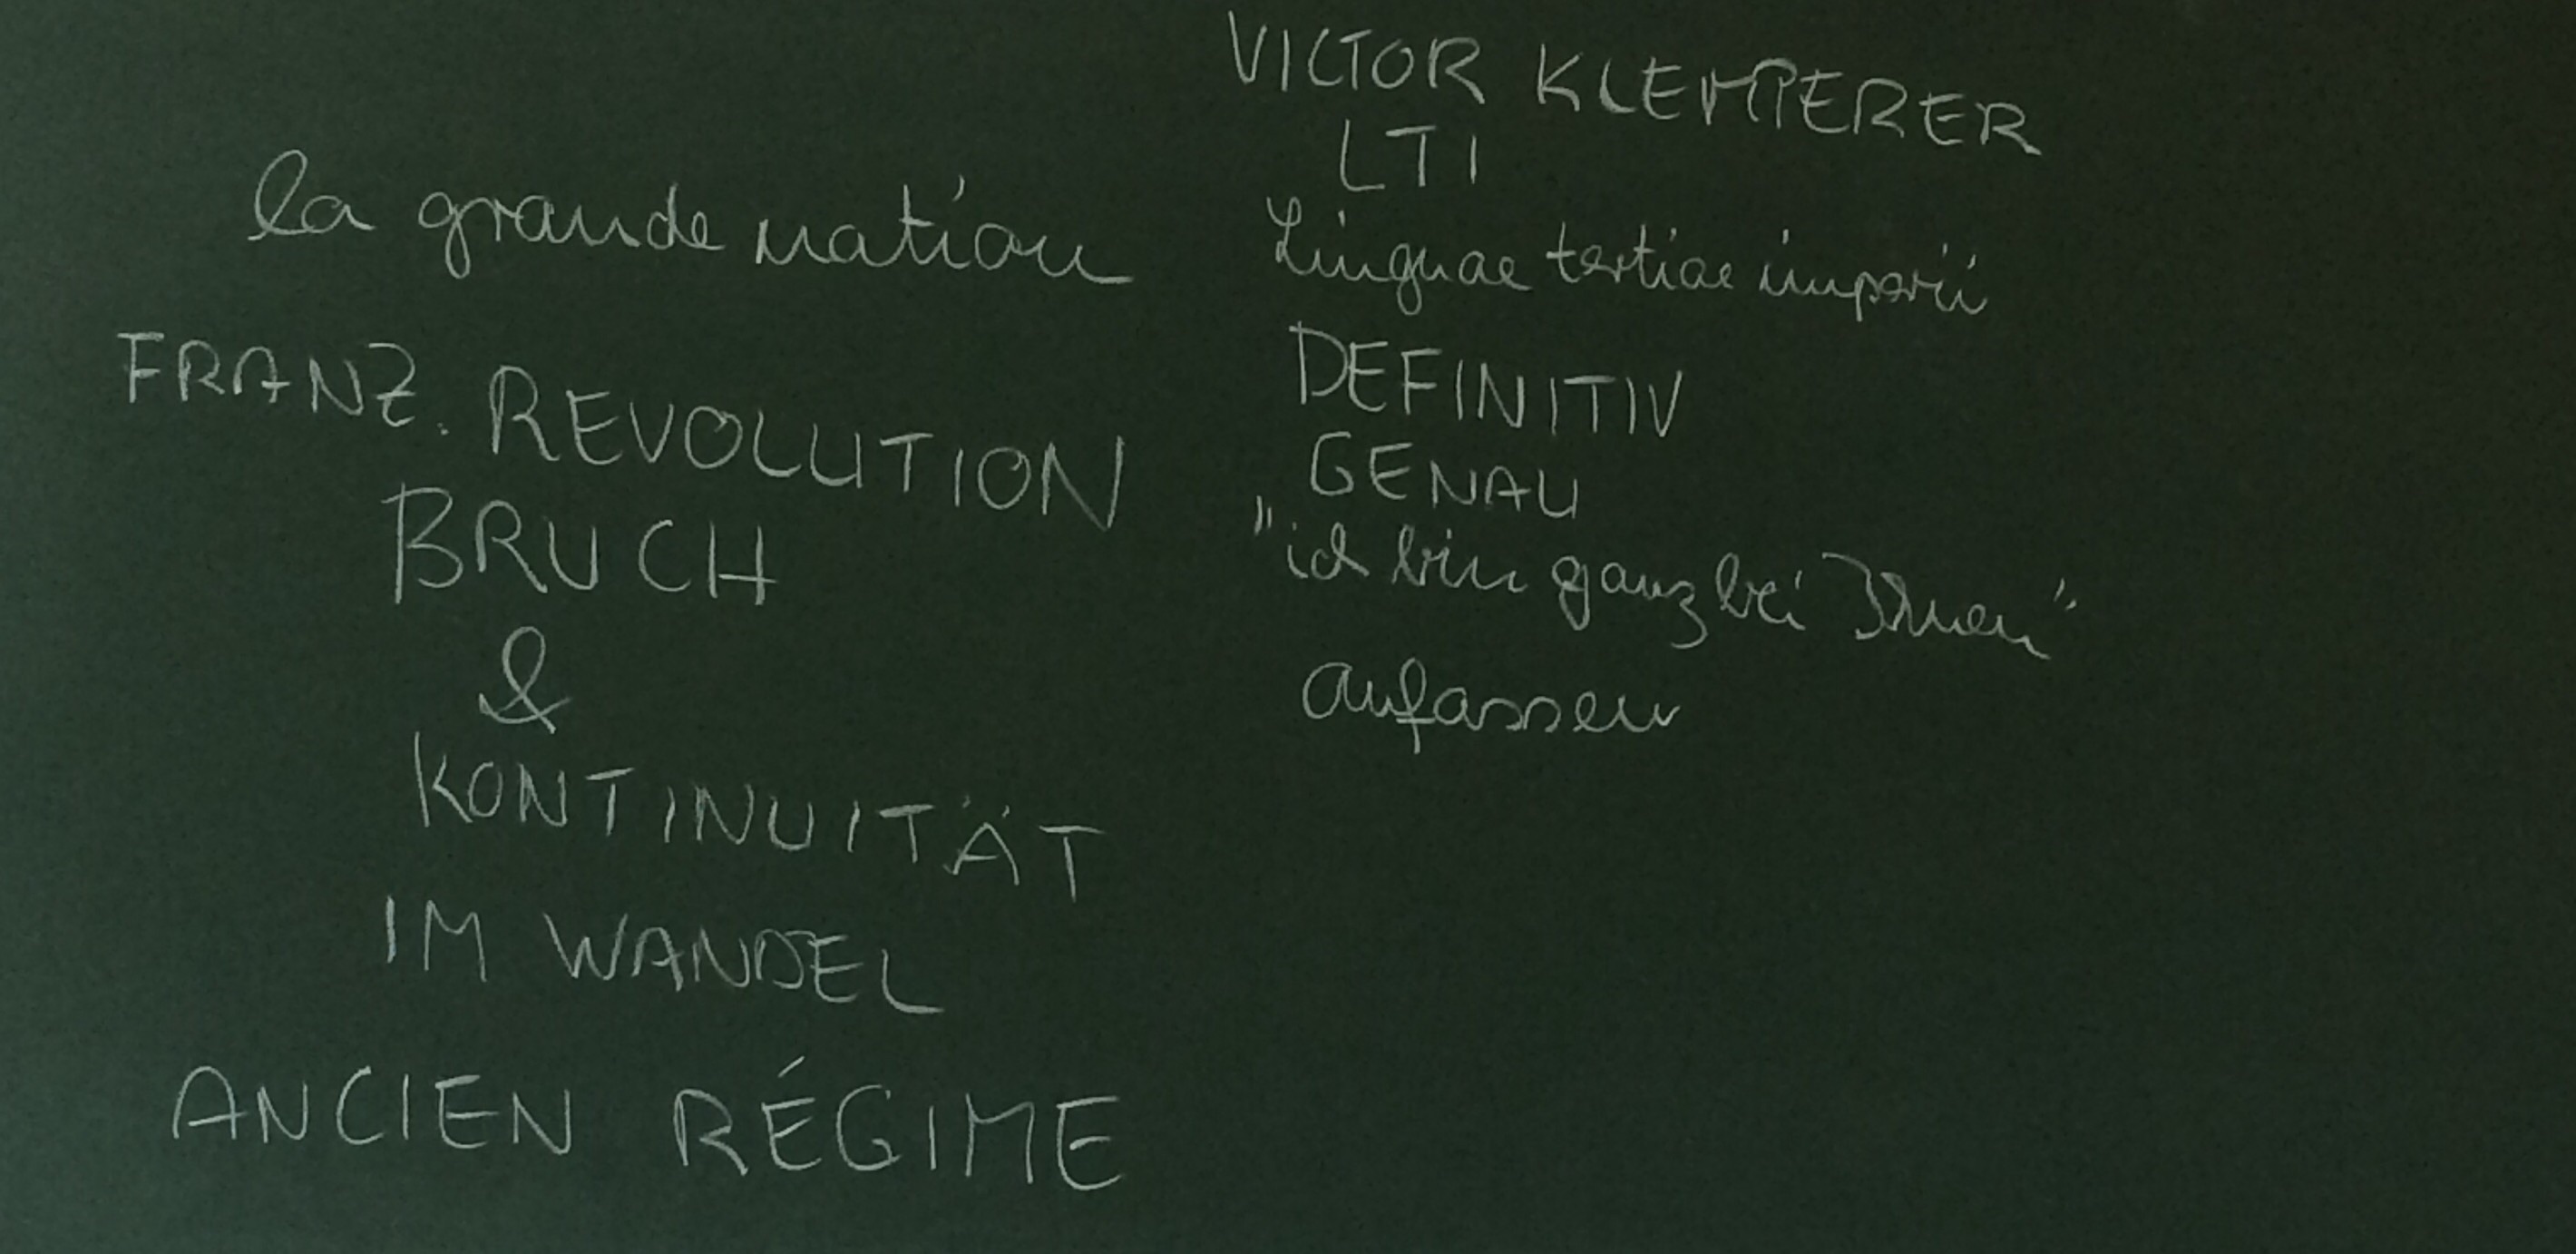 la grande nation
FRANZ. REVOLUTION
BRUCH
&
KONTINUITÄT
IM WANDEL
ANCIEN RÉGIME
VICTOR KLEMPERER
LTI
Linguae tertiae imperii
DEFINITIV
GENAU
"ich bin ganz bei Ihnen"
anfassen